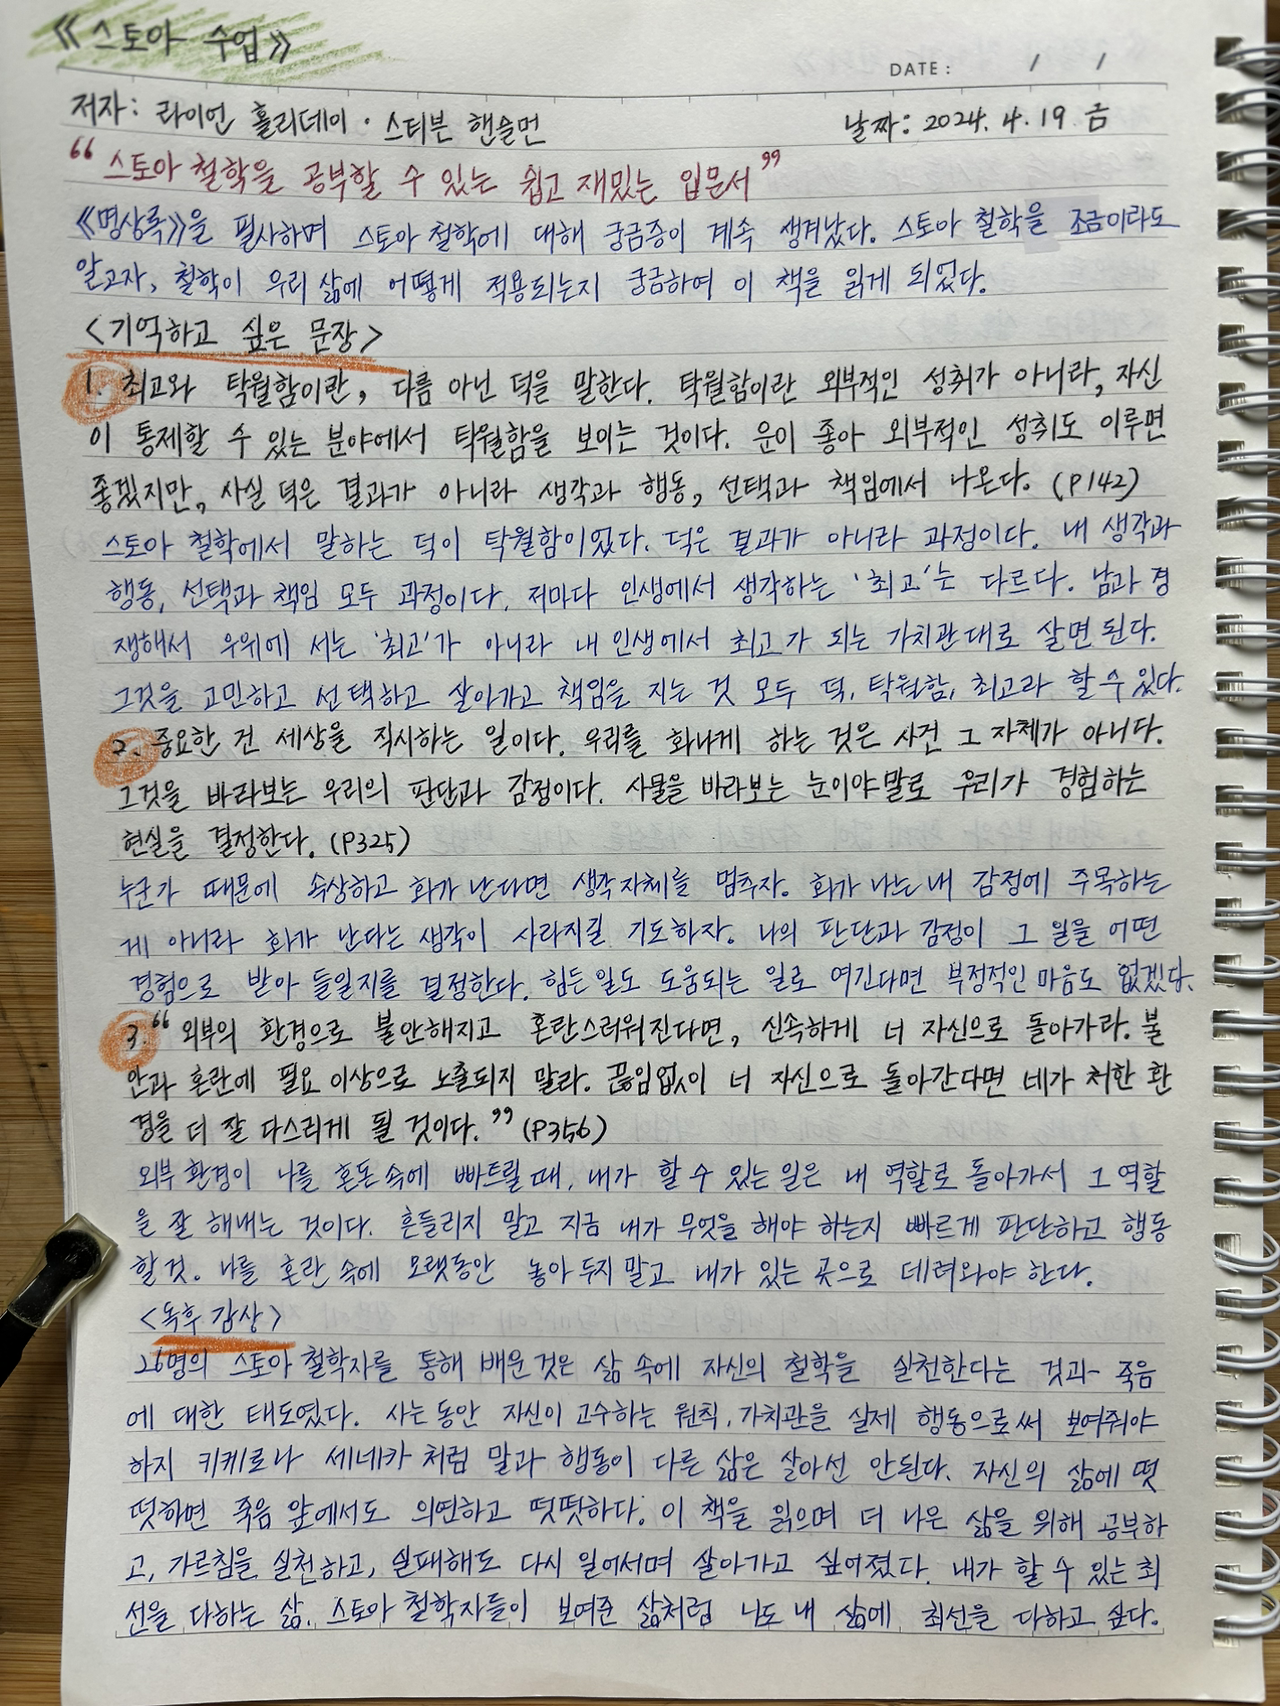 《스토아 수업》
DATE : / /
저자: 라이언 홀리데이 · 스티븐 핸슬먼 날짜: 2024. 4. 19 금
“스토아 철학을 공부할 수 있는 쉽고 재밌는 입문서”
《명상록》을 필사하며 스토아 철학에 대해 궁금증이 계속 생겨났다. 스토아 철학을 조금이라도
알고자, 철학이 우리 삶에 어떻게 적용되는지 궁금하여 이 책을 읽게 되었다.
<기억하고 싶은 문장>
1. 최고와 탁월함이란, 다름 아닌 덕을 말한다. 탁월함이란 외부적인 성취가 아니라, 자신
이 통제할 수 있는 분야에서 탁월함을 보이는 것이다. 운이 좋아 외부적인 성취도 이루면
좋겠지만, 사실 덕은 결과가 아니라 생각과 행동, 선택과 책임에서 나온다. (P142)
스토아 철학에서 말하는 덕이 탁월함이었다. 덕은 결과가 아니라 과정이다. 내 생각과
행동, 선택과 책임 모두 과정이다. 저마다 인생에서 생각하는 '최고'는 다르다. 남과 경
쟁해서 우위에 서는 '최고'가 아니라 내 인생에서 최고가 되는 가치관대로 살면 된다.
그것을 고민하고 선택하고 살아가고 책임을 지는 것 모두 덕, 탁월함, 최고라 할 수 있다.
2. 중요한 건 세상을 직시하는 일이다. 우리를 화나게 하는 것은 사건 그 자체가 아니다.
그것을 바라보는 우리의 판단과 감정이다. 사물을 바라보는 눈이야말로 우리가 경험하는
현실을 결정한다. (P325)
누군가 때문에 속상하고 화가 난다면 생각 자체를 멈추자. 화가 나는 내 감정에 주목하는
게 아니라 화가 난다는 생각이 사라지길 기도하자. 나의 판단과 감정이 그 일을 어떤
경험으로 받아 들일지를 결정한다. 힘든 일도 도움되는 일로 여긴다면 부정적인 마음도 없겠다.
3. “외부의 환경으로 불안해지고 혼란스러워진다면, 신속하게 너 자신으로 돌아가라. 불
안과 혼란에 필요 이상으로 노출되지 말라. 끊임없이 너 자신으로 돌아간다면 네가 처한 환
경을 더 잘 다스리게 될 것이다.” (P356)
외부 환경이 나를 혼돈 속에 빠트릴 때, 내가 할 수 있는 일은 내 역할로 돌아가서 그 역할
을 잘 해내는 것이다. 흔들리지 말고 지금 내가 무엇을 해야 하는지 빠르게 판단하고 행동
할 것. 나를 혼란 속에 오랫동안 놓아 두지 말고 내가 있는 곳으로 데려와야 한다.
<독후 감상>
26명의 스토아 철학자를 통해 배운 것은 삶 속에 자신의 철학을 실천한다는 것과 죽음
에 대한 태도였다. 사는 동안 자신이 고수하는 원칙, 가치관을 실제 행동으로써 보여줘야
하지 키케로나 세네카처럼 말과 행동이 다른 삶은 살아선 안된다. 자신의 삶에 떳
떳하면 죽음 앞에서도 의연하고 떳떳하다. 이 책을 읽으며 더 나은 삶을 위해 공부하
고, 가르침을 실천하고, 실패해도 다시 일어서며 살아가고 싶어졌다. 내가 할 수 있는 최
선을 다하는 삶. 스토아 철학자들이 보여준 삶처럼 나도 내 삶에 최선을 다하고 싶다.